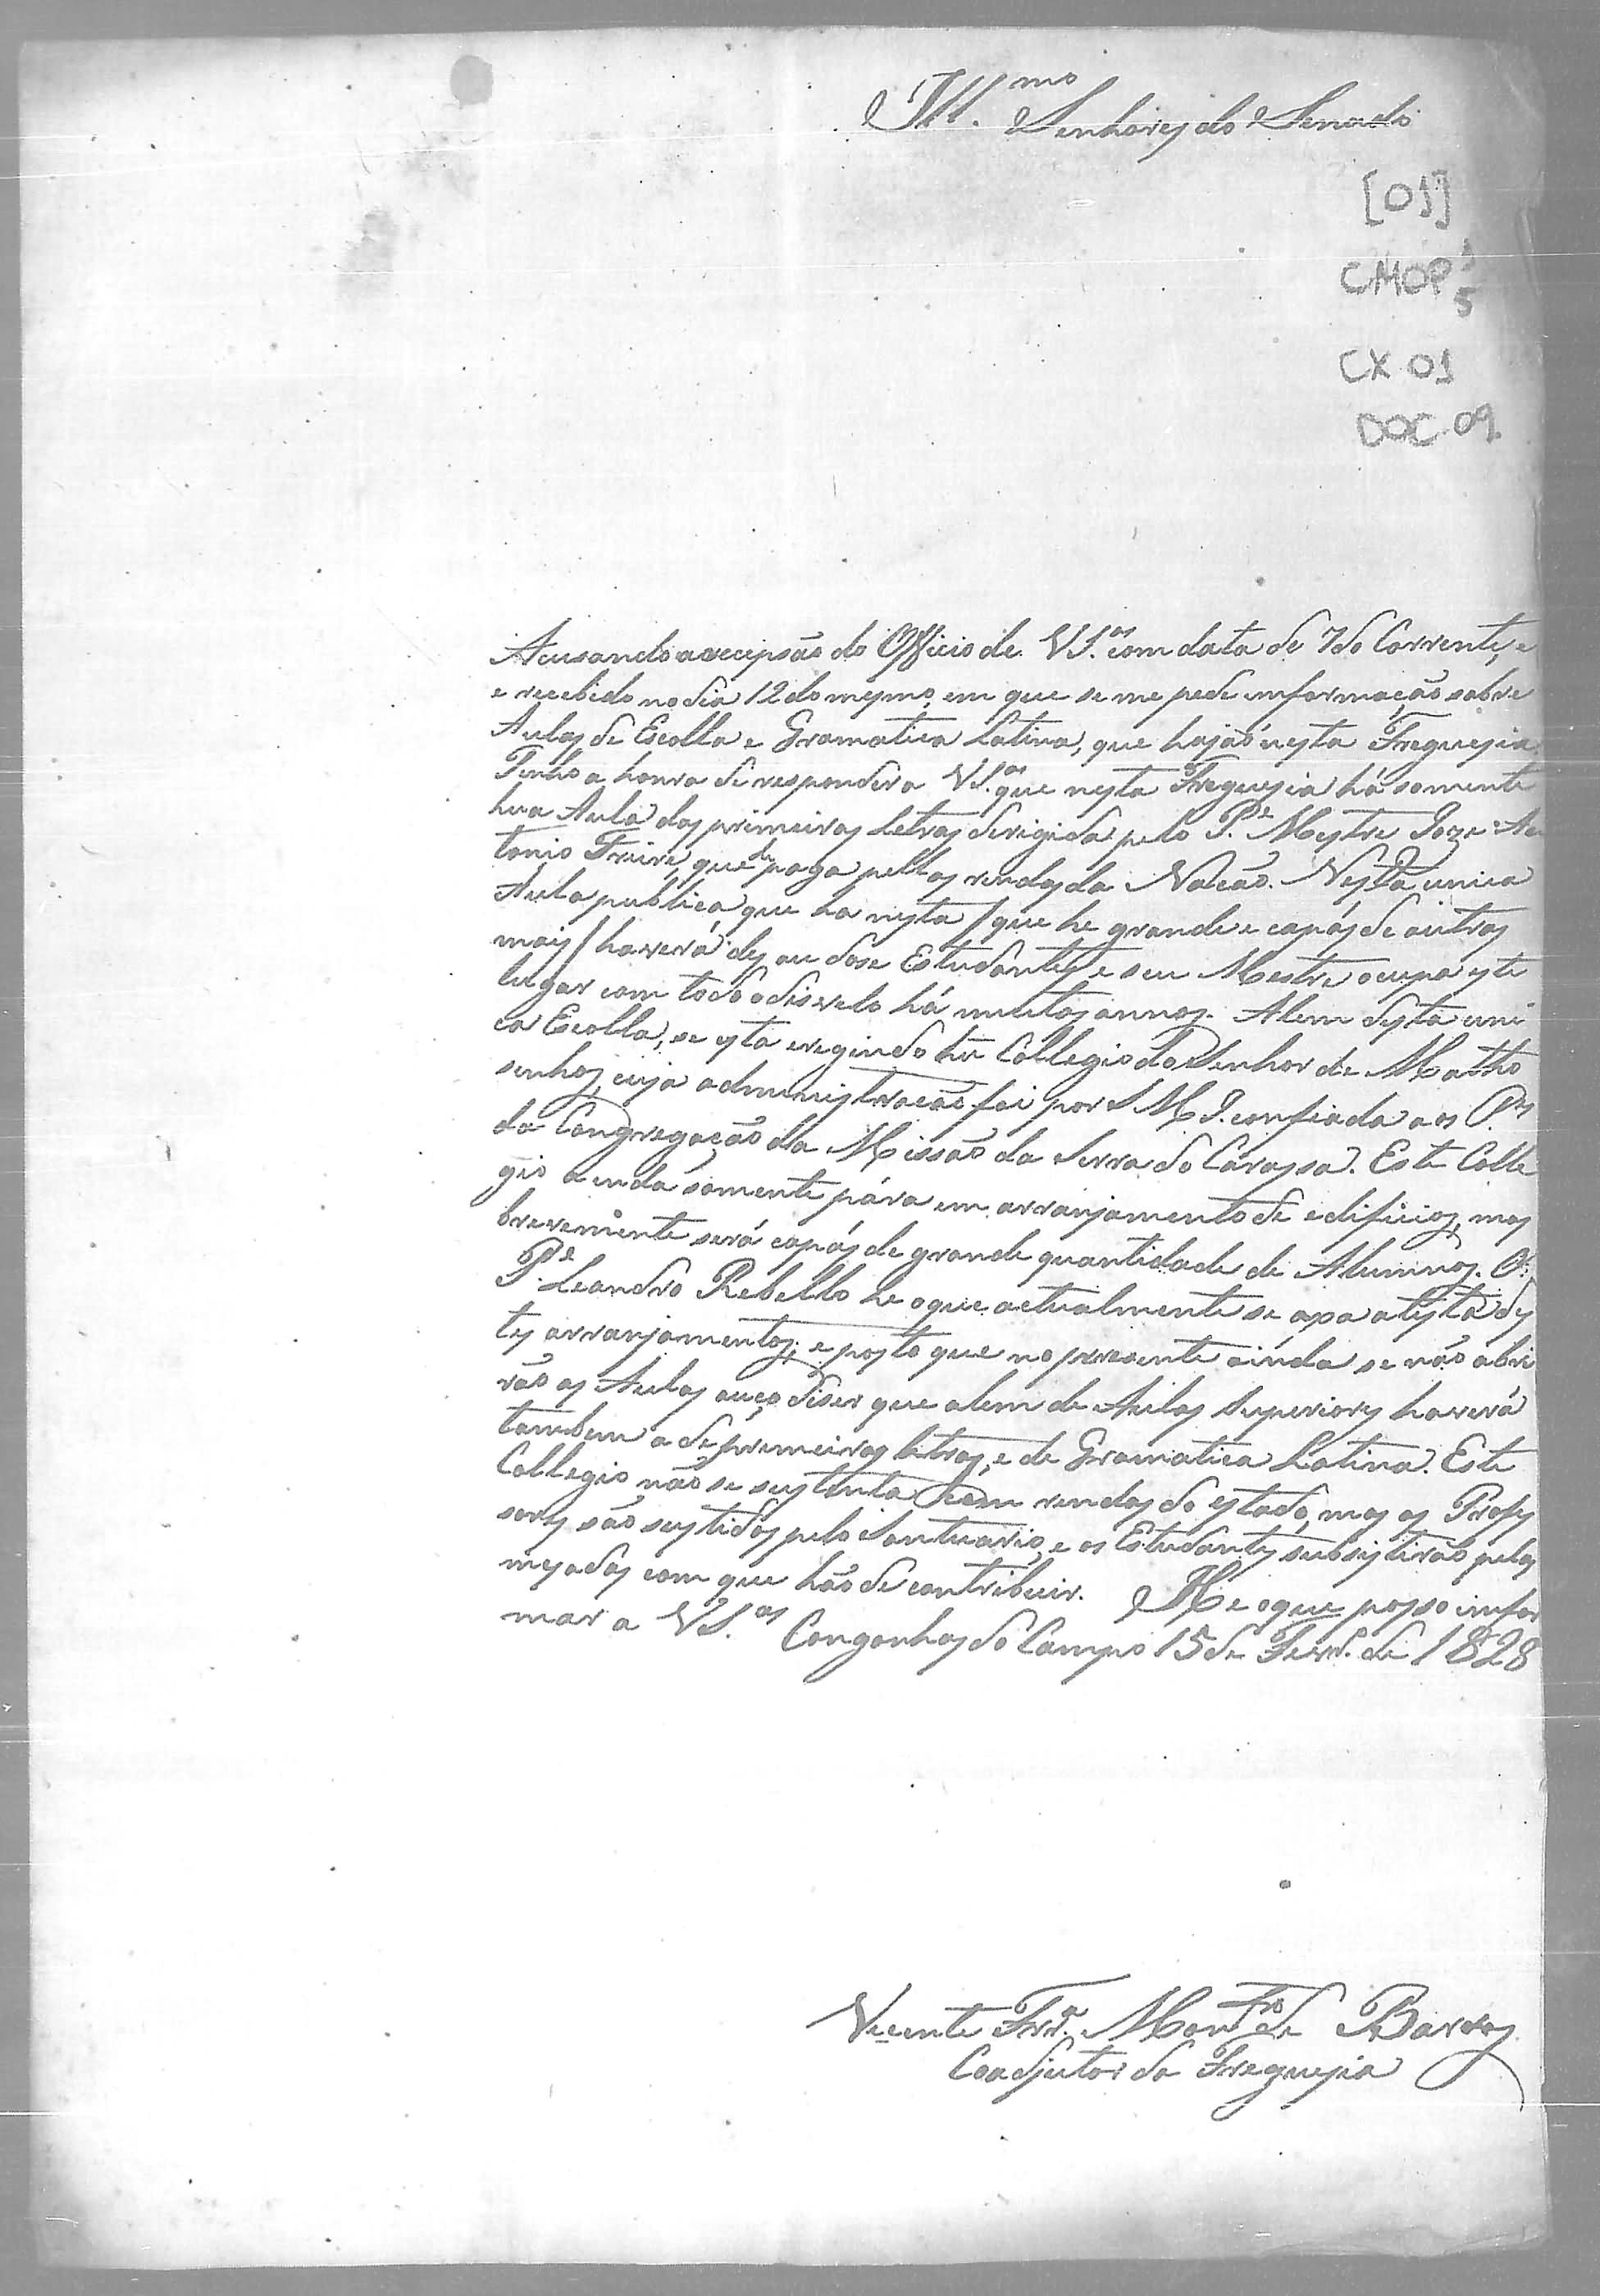 Ill.mos Senhores do Senado
[01]
CMOP 3
5
CX 01
DOC. 09.
Acusando a recepsão do Officio de VS.as com data de 7 do Corrente, e
e recebido no dia 12 do mesmo, em que se me pede informação sobre
Aulas de Escolla e Gramatica Latina, que hajão nesta Freguesia.
Tenho a honra de responder a VS.as que nesta Freguesia há somente
hua Aula das primeiras letras derigida pelo P.e Mestre Joze An
tonio Freire, que he paga pellas rendas da Nacão. Nesta unica
Aula publica que ha nesta / que he grande e capás de outras
mais / haverá des ou dose Estudantes e seu Mestre ocupa este
lugar com todo o disvelo há muitos annos. Alem desta uni
ca Escolla, se esta eregindo hu Collegio do Senhor de Matho
sinhos, cuja administracão foi por S M I. confiada aos P.es
da Congregação da Missão da Serra do Carassa. Este Colle
gio ainda somente pára em arranjamento de edificios, mas
brevemente será capás de grande quantidade de Alumnos. O
P.e Leandro Rebello he o que actualmente se axa a testa des
tes arranjamentos; e posto que no presente ainda se não abri
rão as Aulas ouço diser que alem de Aulas Superiores haverá
tambem a de primeiras letras, e de Gramatica Latina. Este
Collegio não se sustenta com rendas do estado, mas os Profes
sores são sustidos pelo Santuario, e os Estudantes subsistirão pelas
mesadas com que hão de contribuir. He o que posso infor
mar a VS.as Congonhas do Campo 15 de Fever.o de 1828
Vicente Frr.a Montr.o de Barros
Coadjutor da Freguesia